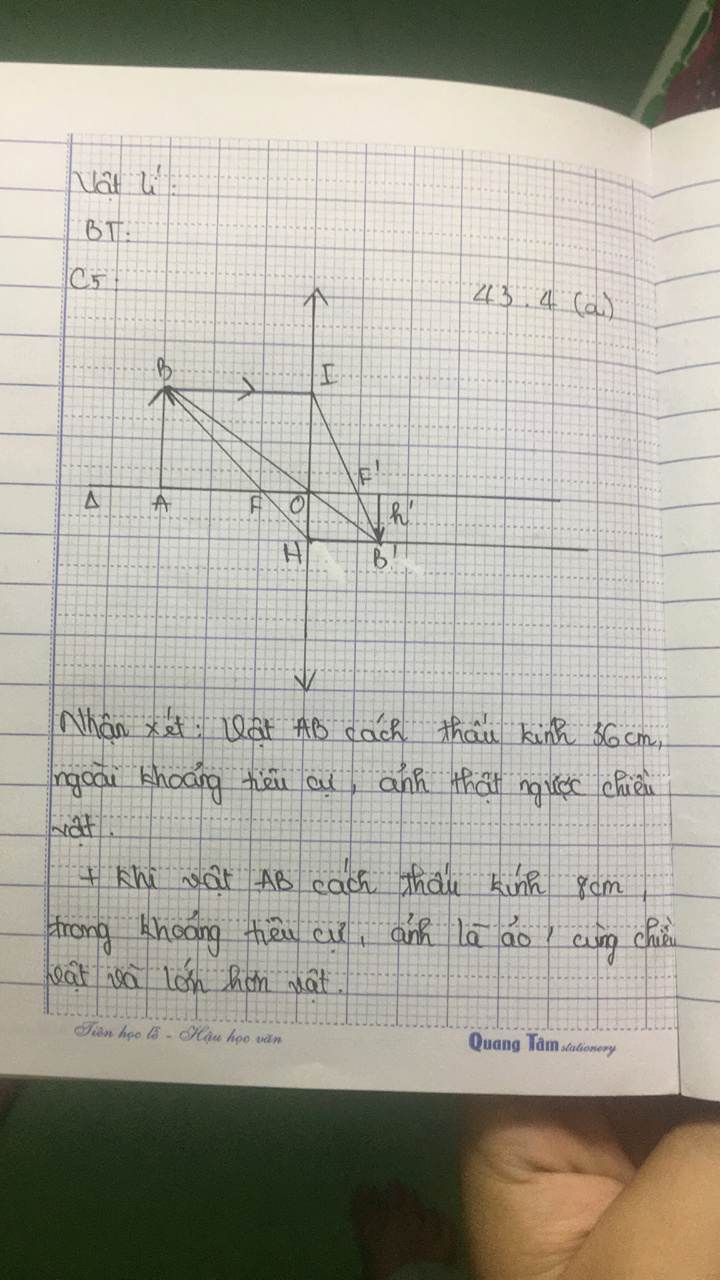 Vật lí:
BT:
C5:
43.4 (a)
B
I
F'
Δ
A
F
O
h'
H
B'
Nhận xét: Vật AB cách thấu kính 36cm,
ngoài khoảng tiêu cự, ảnh thật ngược chiều
vật.
+ Khi vật AB cách thấu kính 8cm,
trong khoảng tiêu cự, ảnh là ảo, cùng chiều
vật và lớn hơn vật.
Tiên học lễ - Hậu học văn
Quang Tâm stationery